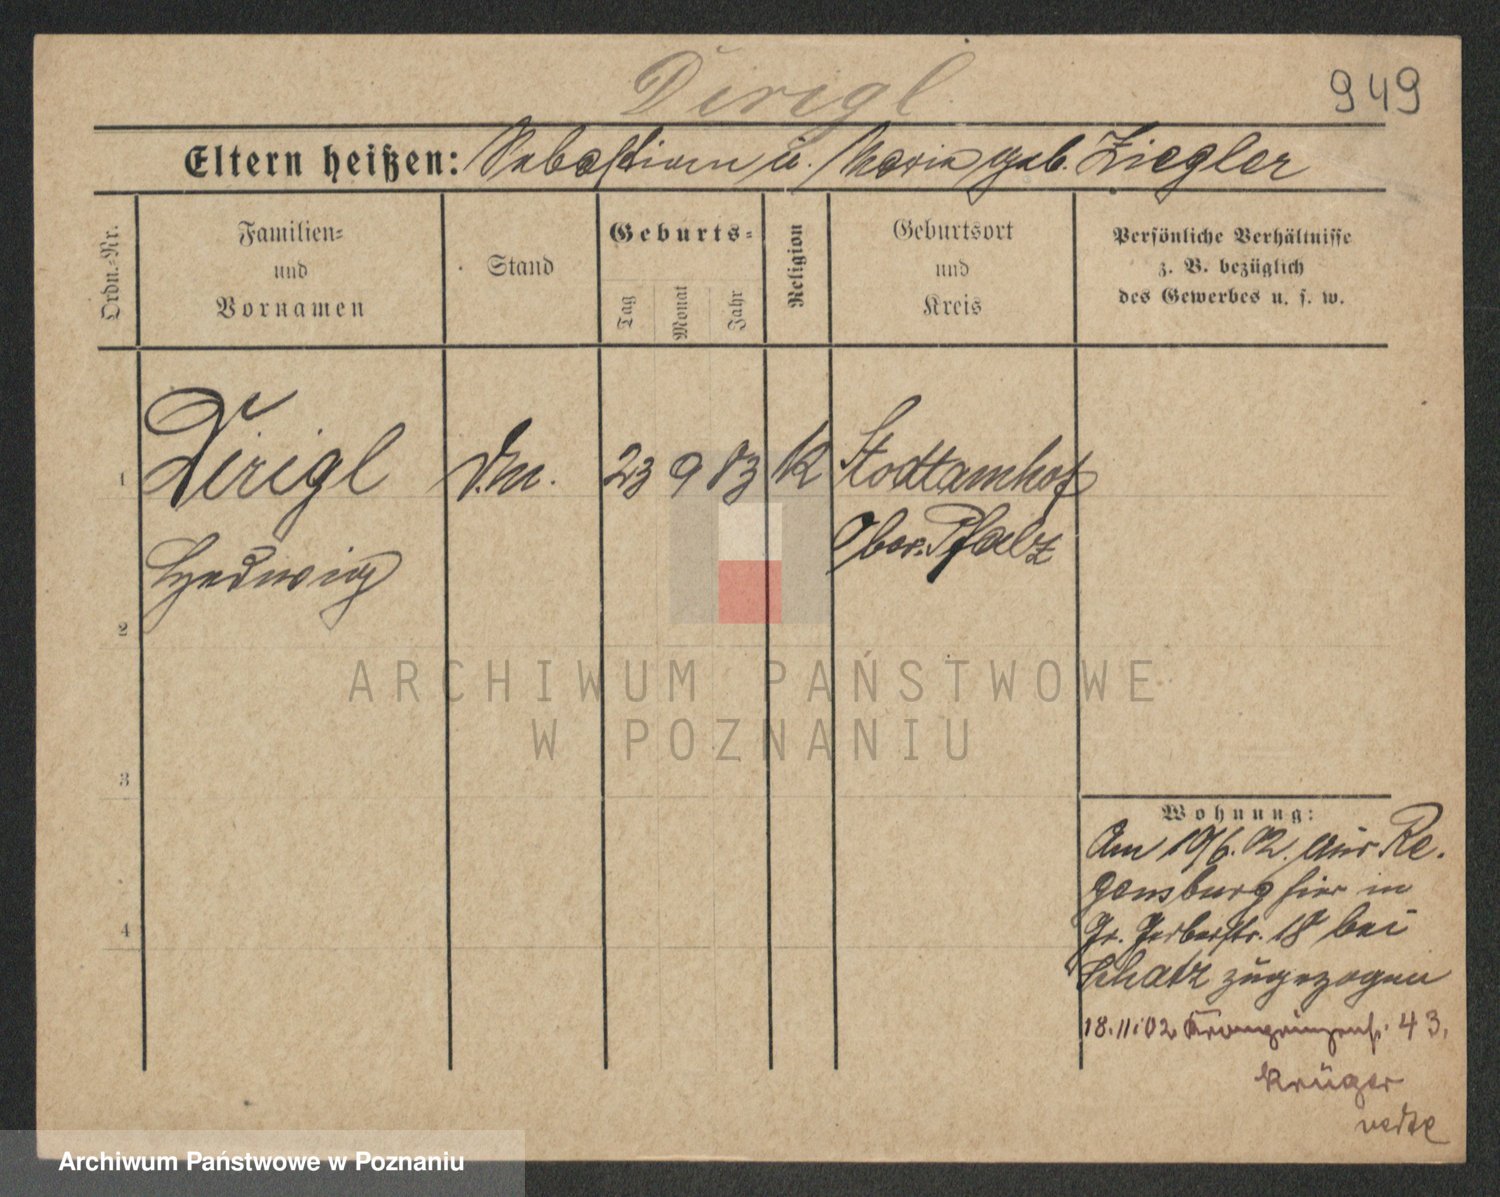 Dirigl
949
Eltern heißen: Sebastian u. Maria geb. Ziegler
Ordn.-Nr.
Familien-
und
Vornamen
Stand
Geburts-
Tag
Monat
Jahr
Religion
Geburtsort
und
Kreis
Persönliche Verhältnisse
z. B. bezüglich
des Gewerbes u. s. w.
1
Dirigl
23 9 83 K
Stadtamhof
Hedwig
Ober-Pfalz
2
ARCHIWUM PAŃSTWOWE
W POZNANIU
3
Wohnung:
Am 19/6. 02. aus Re-
gensburg hier in
4
Gr. Gerberstr. 18 bei
Schatz zugezogen
18.11.02 Kronprinzenstr. 43.
Krüger
Archiwum Państwowe w Poznaniu